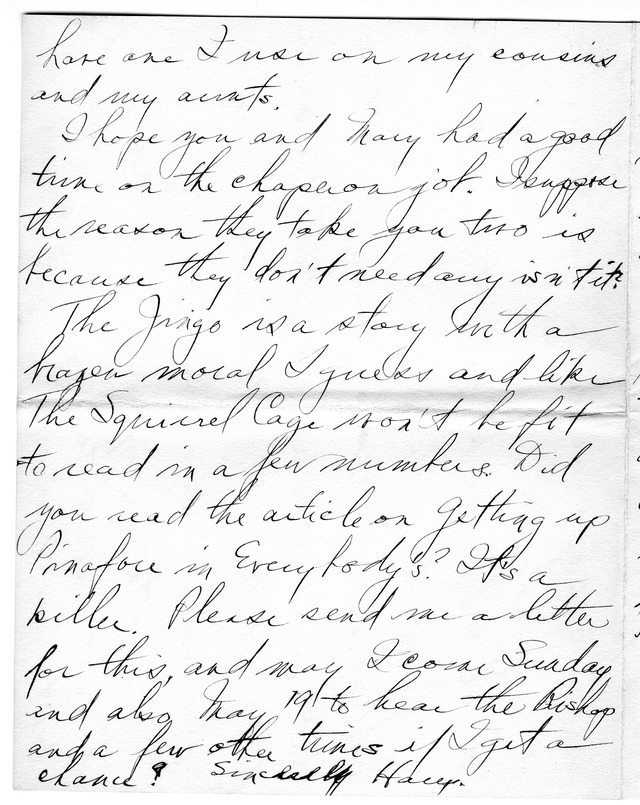 have one I use on my cousins
and my aunts.
I hope you and Mary had a good
time on the chaperon job. I suppose
the reason they take you two is
because they don't need any isn't it?
The Jingo is a story with a
brazen moral I guess and like
The Squirrel Cage won't be fit
to read in a few numbers. Did
you read the article on Getting up
Pinafore in Everybody's? It's a
killer. Please send me a letter
for this, and may I come Sunday
and also May 19 to hear the Bishop
and a few other times if I get a
chance? Sincerely Harry.